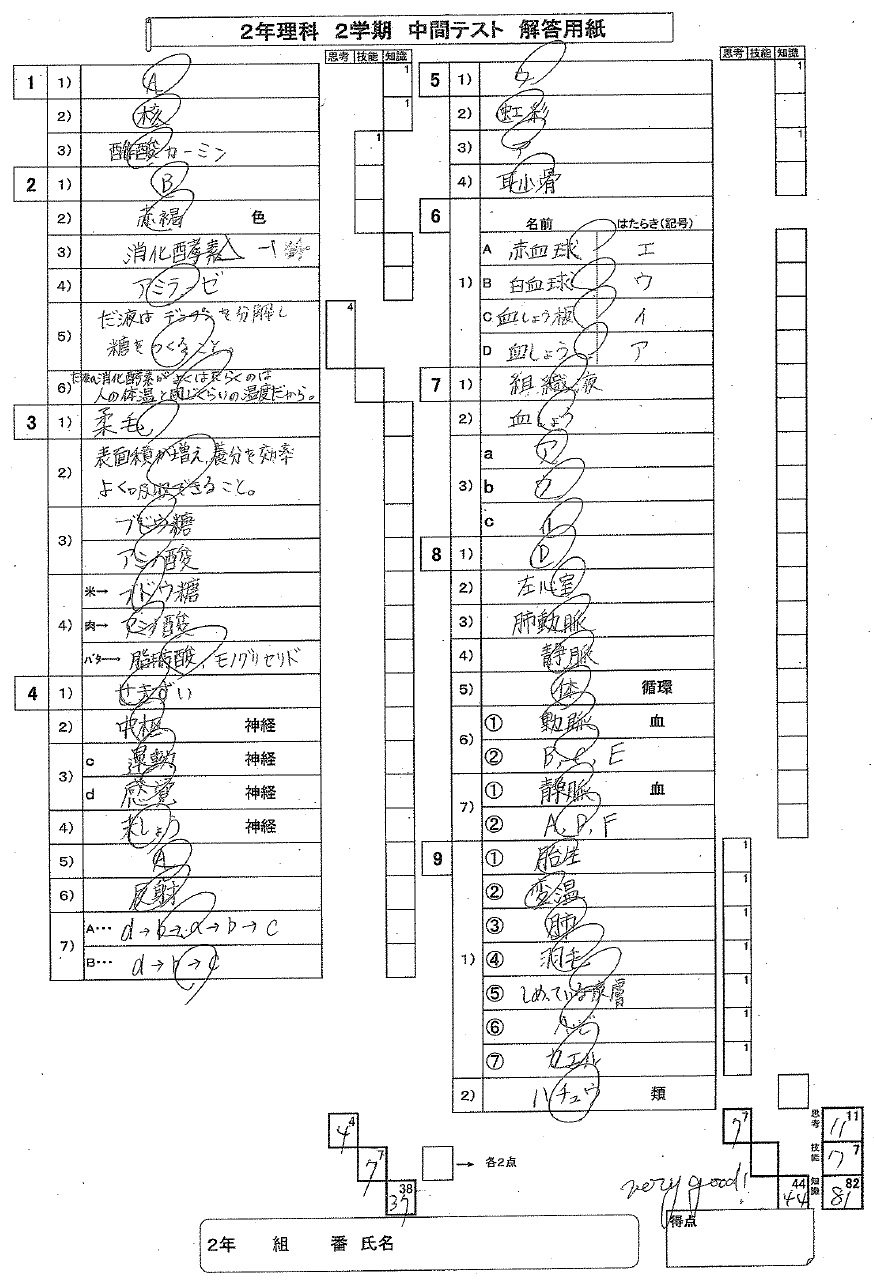 2年理科 2学期 中間テスト 解答用紙
思考 技能 知識
1 1) A 1
2) 核 1
3) 酢酸カーミン 1
2 1) B
2) 赤褐 色
3) 消化酵素 -1
4) アミラーゼ
5) だ液はデンプンを分解し 4
糖をつくること。
6) だ液の消化酵素がよくはたらくのは
人の体温と同じくらいの温度だから。
3 1) 柔毛
2) 表面積が増え、養分を効率
よく吸収できること。
3) ブドウ糖
アミノ酸
4) 米→ ブドウ糖
肉→ アミノ酸
バター→ 脂肪酸、モノグリセリド
4 1) せきずい
2) 中枢 神経
3) c 運動 神経
d 感覚 神経
4) 末しょう 神経
5) A
6) 反射
7) A… d→b→a→b→c
B… d→b→c
4 4
7 7
38 37
→ 各2点
思考 技能 知識
5 1) ウ 1
2) 虹彩
3) ア 1
4) 耳小骨
6 名前 はたらき(記号)
1) A 赤血球 エ
B 白血球 ウ
C 血しょう板 イ
D 血しょう ア
7 1) 組織液
2) 血しょう
3) a ア
b ウ
c イ
8 1) D
2) 左心室
3) 肺動脈
4) 静脈
5) 体 循環
6) ① 動脈 血
② B、C、E
7) ① 静脈 血
② A、D、F
9 1) ① 胎生 1
② 変温 1
③ 肺 1
④ 羽毛 1
⑤ しめっている皮膚 1
⑥ ヘビ 1
⑦ カエル 1
2) ハチュウ 類
7 7
44 44
思考 11 11
技能 7 7
知識 82 81
very good!
得点
2年 組 番 氏名